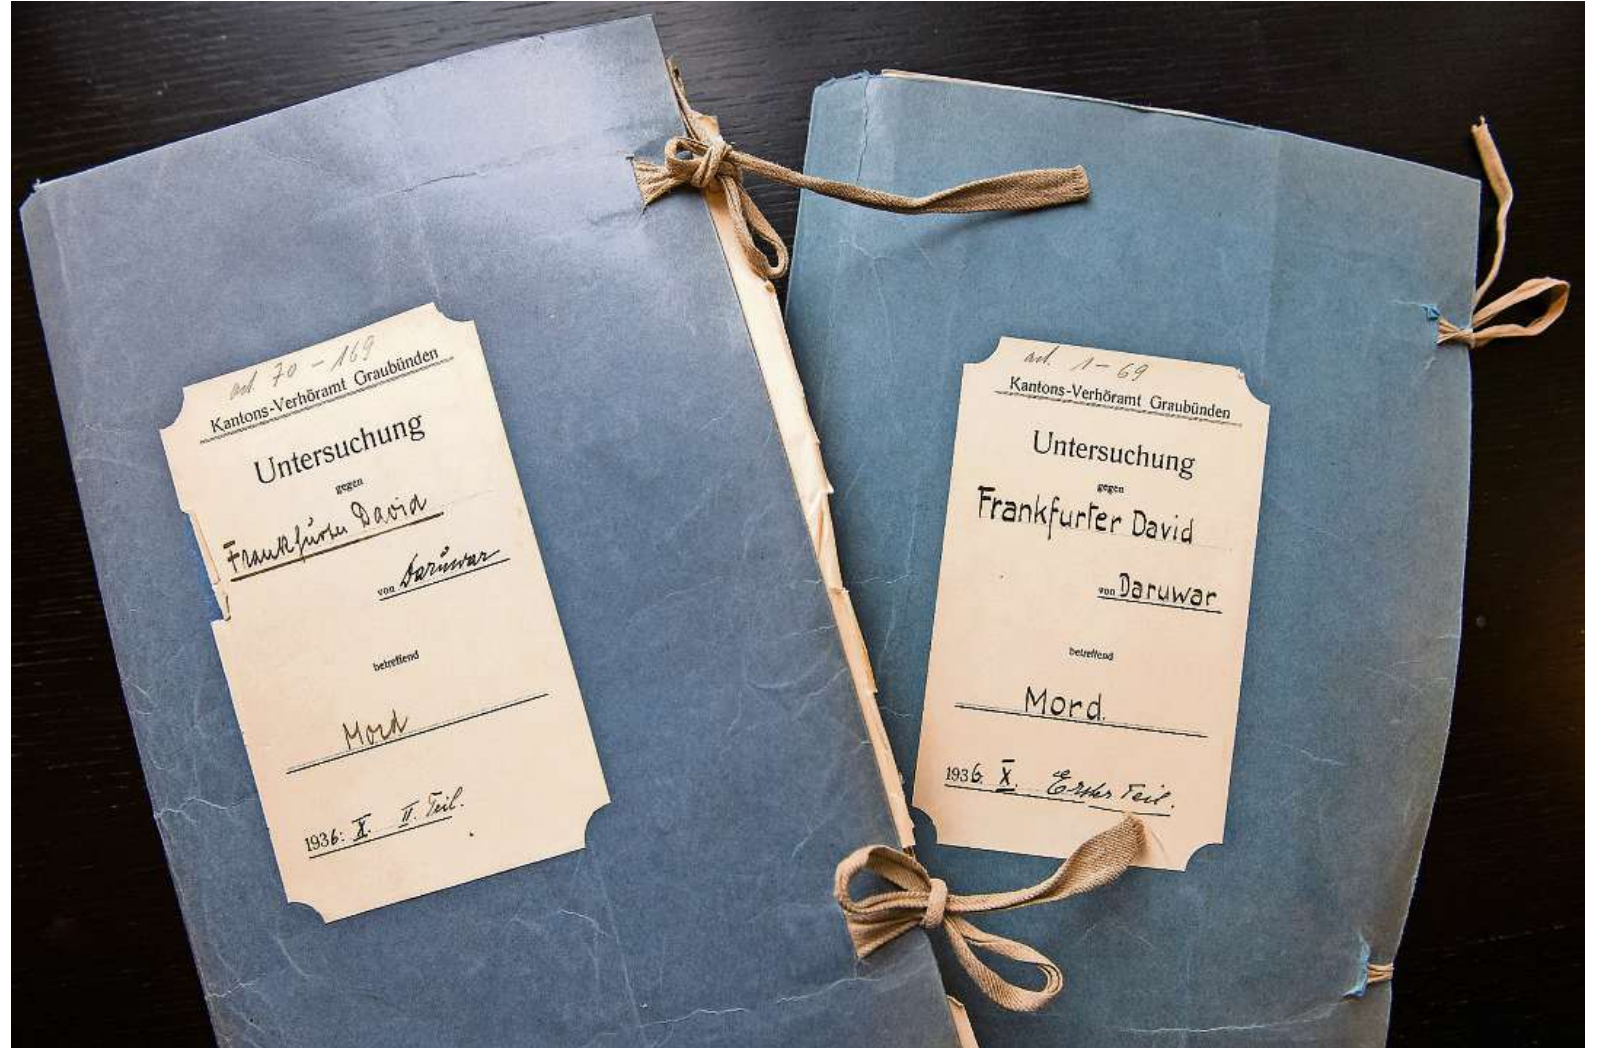 act. 70 - 169
Kantons-Verhöramt Graubünden
Untersuchung
gegen
Frankfurter David
von Darŭwar
betreffend
Mord
1936: X. II. Teil.
act. 1 - 69
Kantons-Verhöramt Graubünden
Untersuchung
gegen
Frankfurter David
von Daruwar
betreffend
Mord.
1936. X. Erster Teil.